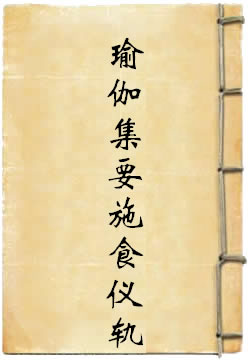 瑜伽集要施食仪轨